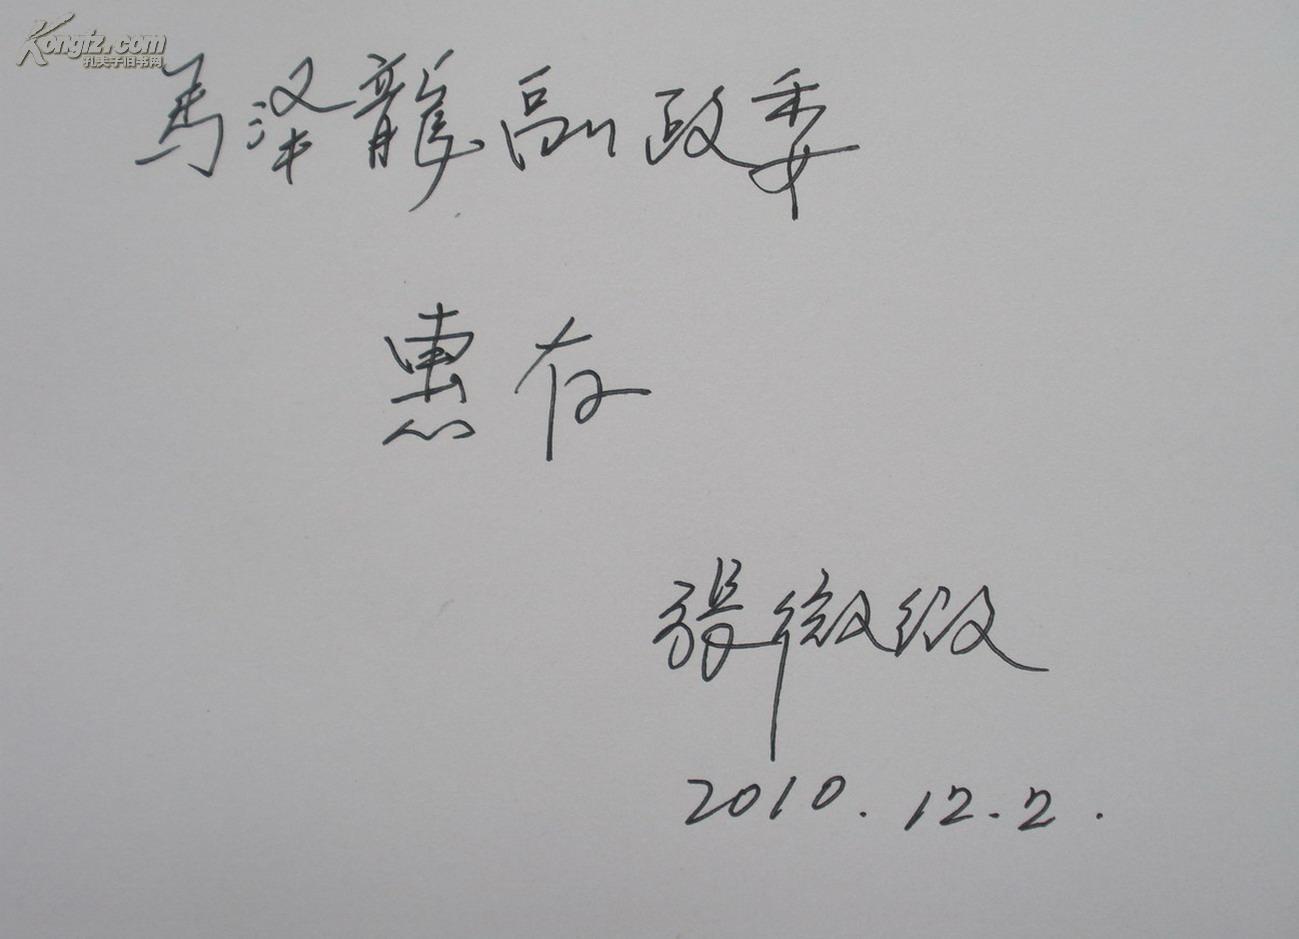 Kongfz.com
孔夫子旧书网
馬泽龍副政委
惠存
張微微
2010.12.2.